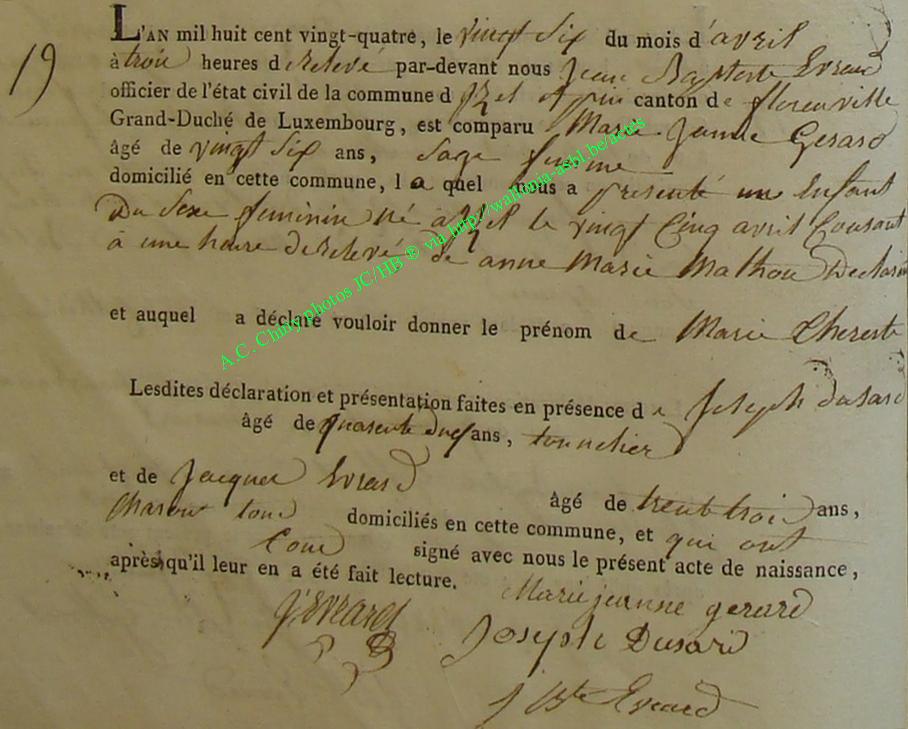 19
L'AN mil huit cent vingt-quatre, le vingt six du mois d'avril
à trois heures de relevé par-devant nous Jean Baptiste Evrard
officier de l'état civil de la commune d'Izel et pin canton de florenville
Grand-Duché de Luxembourg, est comparu Marie Jeanne Gerard
âgé de vingt Six ans, Sage femme
domicilié en cette commune, l a quel nous a presenté un Enfant
Du Sexe feminin né à Izel le vingt Cinq avril Courant
à une heure de relevé de anne Marie Mathou
et auquel a déclaré vouloir donner le prénom de Marie Thereste
Lesdites déclaration et présentation faites en présence d e Joseph dusard
âgé de quarente ans, tonnelier
et de Jacques Evrard
âgé de trent trois ans,
Charon tous domiciliés en cette commune, et qui ont
tous signé avec nous le présent acte de naissance,
après qu'il leur en a été fait lecture.
Marie jeanne gerard
J Evrard
Joseph Dusard
J Bte Evrard
A.C. Chiny photos JC/HB ® via http://wallonia-asbl.be/actes